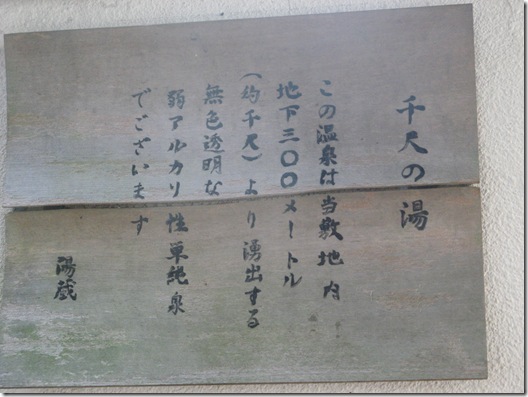 千尺の湯
この温泉は当敷地内
地下三〇〇メートル
(約千尺)より湧出する
無色透明な
弱アルカリ性単純泉
でございます
湯蔵